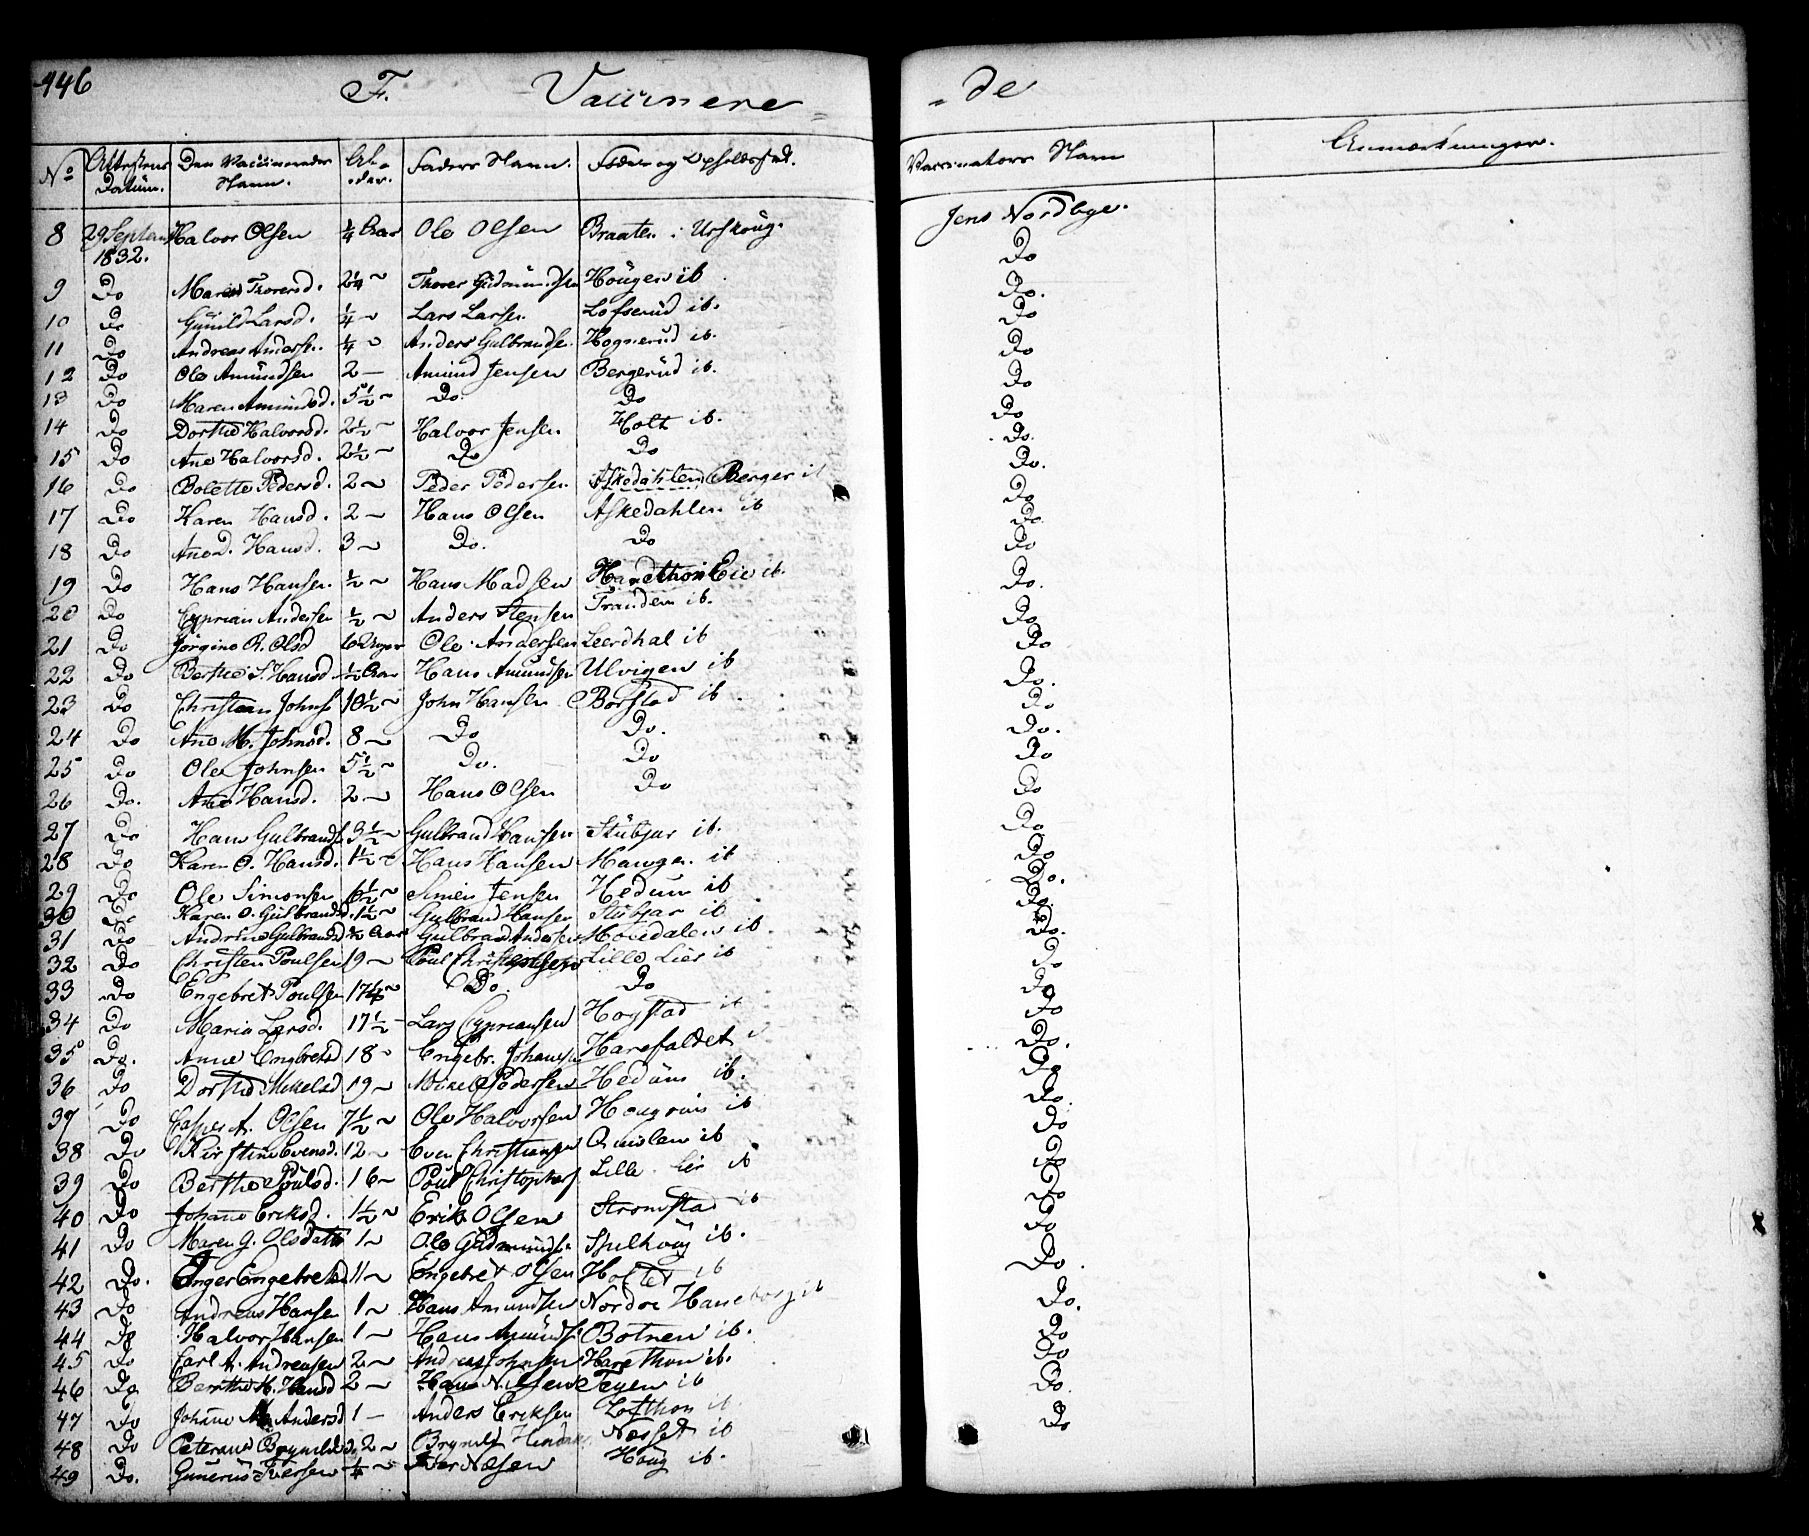 446 F. Vaccinere = - de
No Attestens Datum. Den Vaccineredes Navn. Al- der. Faders Navn. Føde og Opholdssted. Vaccinators Navn Anmærkninger.
8 29 Septem 1832. Halvor Olsen ¼ Aar Ole Olsen Braaten i Urskoug. Jens Nordbye.
9 Do Maren Thorersd. 2¼ ~ Thorer Gudmundsen Hougen ib Do
10 Do Gunild Larsd. ¼ ~ Lars Larsen Lofserud ib. Do.
11 Do Andreas Anders. ¼ ~ Anders Gulbrandsen Hognerud ib. Do
12 Do Ole Amundsen 2 — Amund Jensen Bergerud ib. Do
13 Do Maren Amundsd. 5½ ~ Do. Do Do
14 Do Dorthe Halvorsd. 2½ ~ Halvor Jensen Holt ib. Do
15 Do Ane Halvorsd. 2½ ~ Do Do Do.
16 Do Bolette Pedersd. 2 ~ Peder Pedersen Askedahlen Berger ib Do.
17 Do Karen Hansd. 2 — Hans Olsen Askedahlen ib Do
18 Do Ane D. Hansd. 3 ~ Do. Do Do
19 Do Hans Hansen ½ ~ Hans Madsen Harethon Eie ib. Do
20 Do Cyprian Andersen ½ ~ Anders Stensen Tranden ib. Do.
21 Do Jørgine R. Olsd 16 Uger Ole Andersen Leerdhal ib Do
22 Do Berthe S. Hansd ½ Aar Hans Amundsen Ulvigen ib Do
23 Do Christian Johns 10½ ~ John Hansen Børstad ib Do.
24 Do Ane M. Johnsd. 8 ~ Do Do. Do
25 Do Ole Johnsen 5½ ~ Do. Do Do.
26 Do. Ane Hansd. 2 ~ Hans Olsen Do Do
27 Do Hans Gulbrands 3½ ~ Gulbrand Hansen Stubjar ib. Do
28 Do Karen O. Hansd. 1½ ~ Hans Hansen Mangen ib Do
29 Do Ole Simonsen 6½ ~ Simen Jensen Hedum ib Do
30 Do Karen O. Gulbrandsd. 1½ ~ Gulbrand Hansen Stubjar ib Do.
31 Do Andrine Gulbrandsd ¾ Aar Gulbrand Andersen Moledalen ib. Do
32 Do Christen Poulsen 19 ~ Poul Christophersen Lille Lier ib Do.
33 Do Engebret Poulsen 17¼ ~ Do. Do Do
34 Do Maria Larsd. 17½ ~ Lars Cypriansen Hogstad ib Do
35 Do. Anne Engebretsd 18 ~ Engebr. Johansen Harefaldet Do
36 Do Dorthe Mikelsd 19 ~ Mikel Pedersen Hedum ib. Do.
37 Do Casper A. Olsen 7½ ~ Ole Halvorsen Hougrim ib Do
38 Do Kirstine Evensd. 12 ~ Even Christiansen Qvislen ib Do.
39 Do Berthe Poulsd. 16 ~ Poul Christophers Lille Lier ib Do
40 Do Johane Eriksd. 1½ ~ Erik Olsen Strømstad ib Do
41 Do Maren G. Olsdatter 1 ~ Ole Gudmunds. Spelhoug ib. Do
42 Do. Inger Engebretsd 11 ~ Engebret Olsen Holtet ib Do
43 Do Andreas Hansen 1 ~ Hans Amundsen Nordre Haneborg ib Do.
44 Do Halvor Hansen 1 — Hans Amunds. Botnen ib. Do.
45 Do Carl A. Andreasen 2 ~ Andreas Johnsen Harethon ib. Do
46 Do Berthe M. Hansd 2 — Hans Nilsen Teyen ib Do
47 Do Johane M. Andersd 1 — Anders Eriksen Lofthon ib Do.
48 Do Peterane Brynilds. 2 ~ Brynild Hendriks. Næsset ib Do
49 Do. Gunerius Iversen ¼ ~ Iver Nilsen Houg ib.